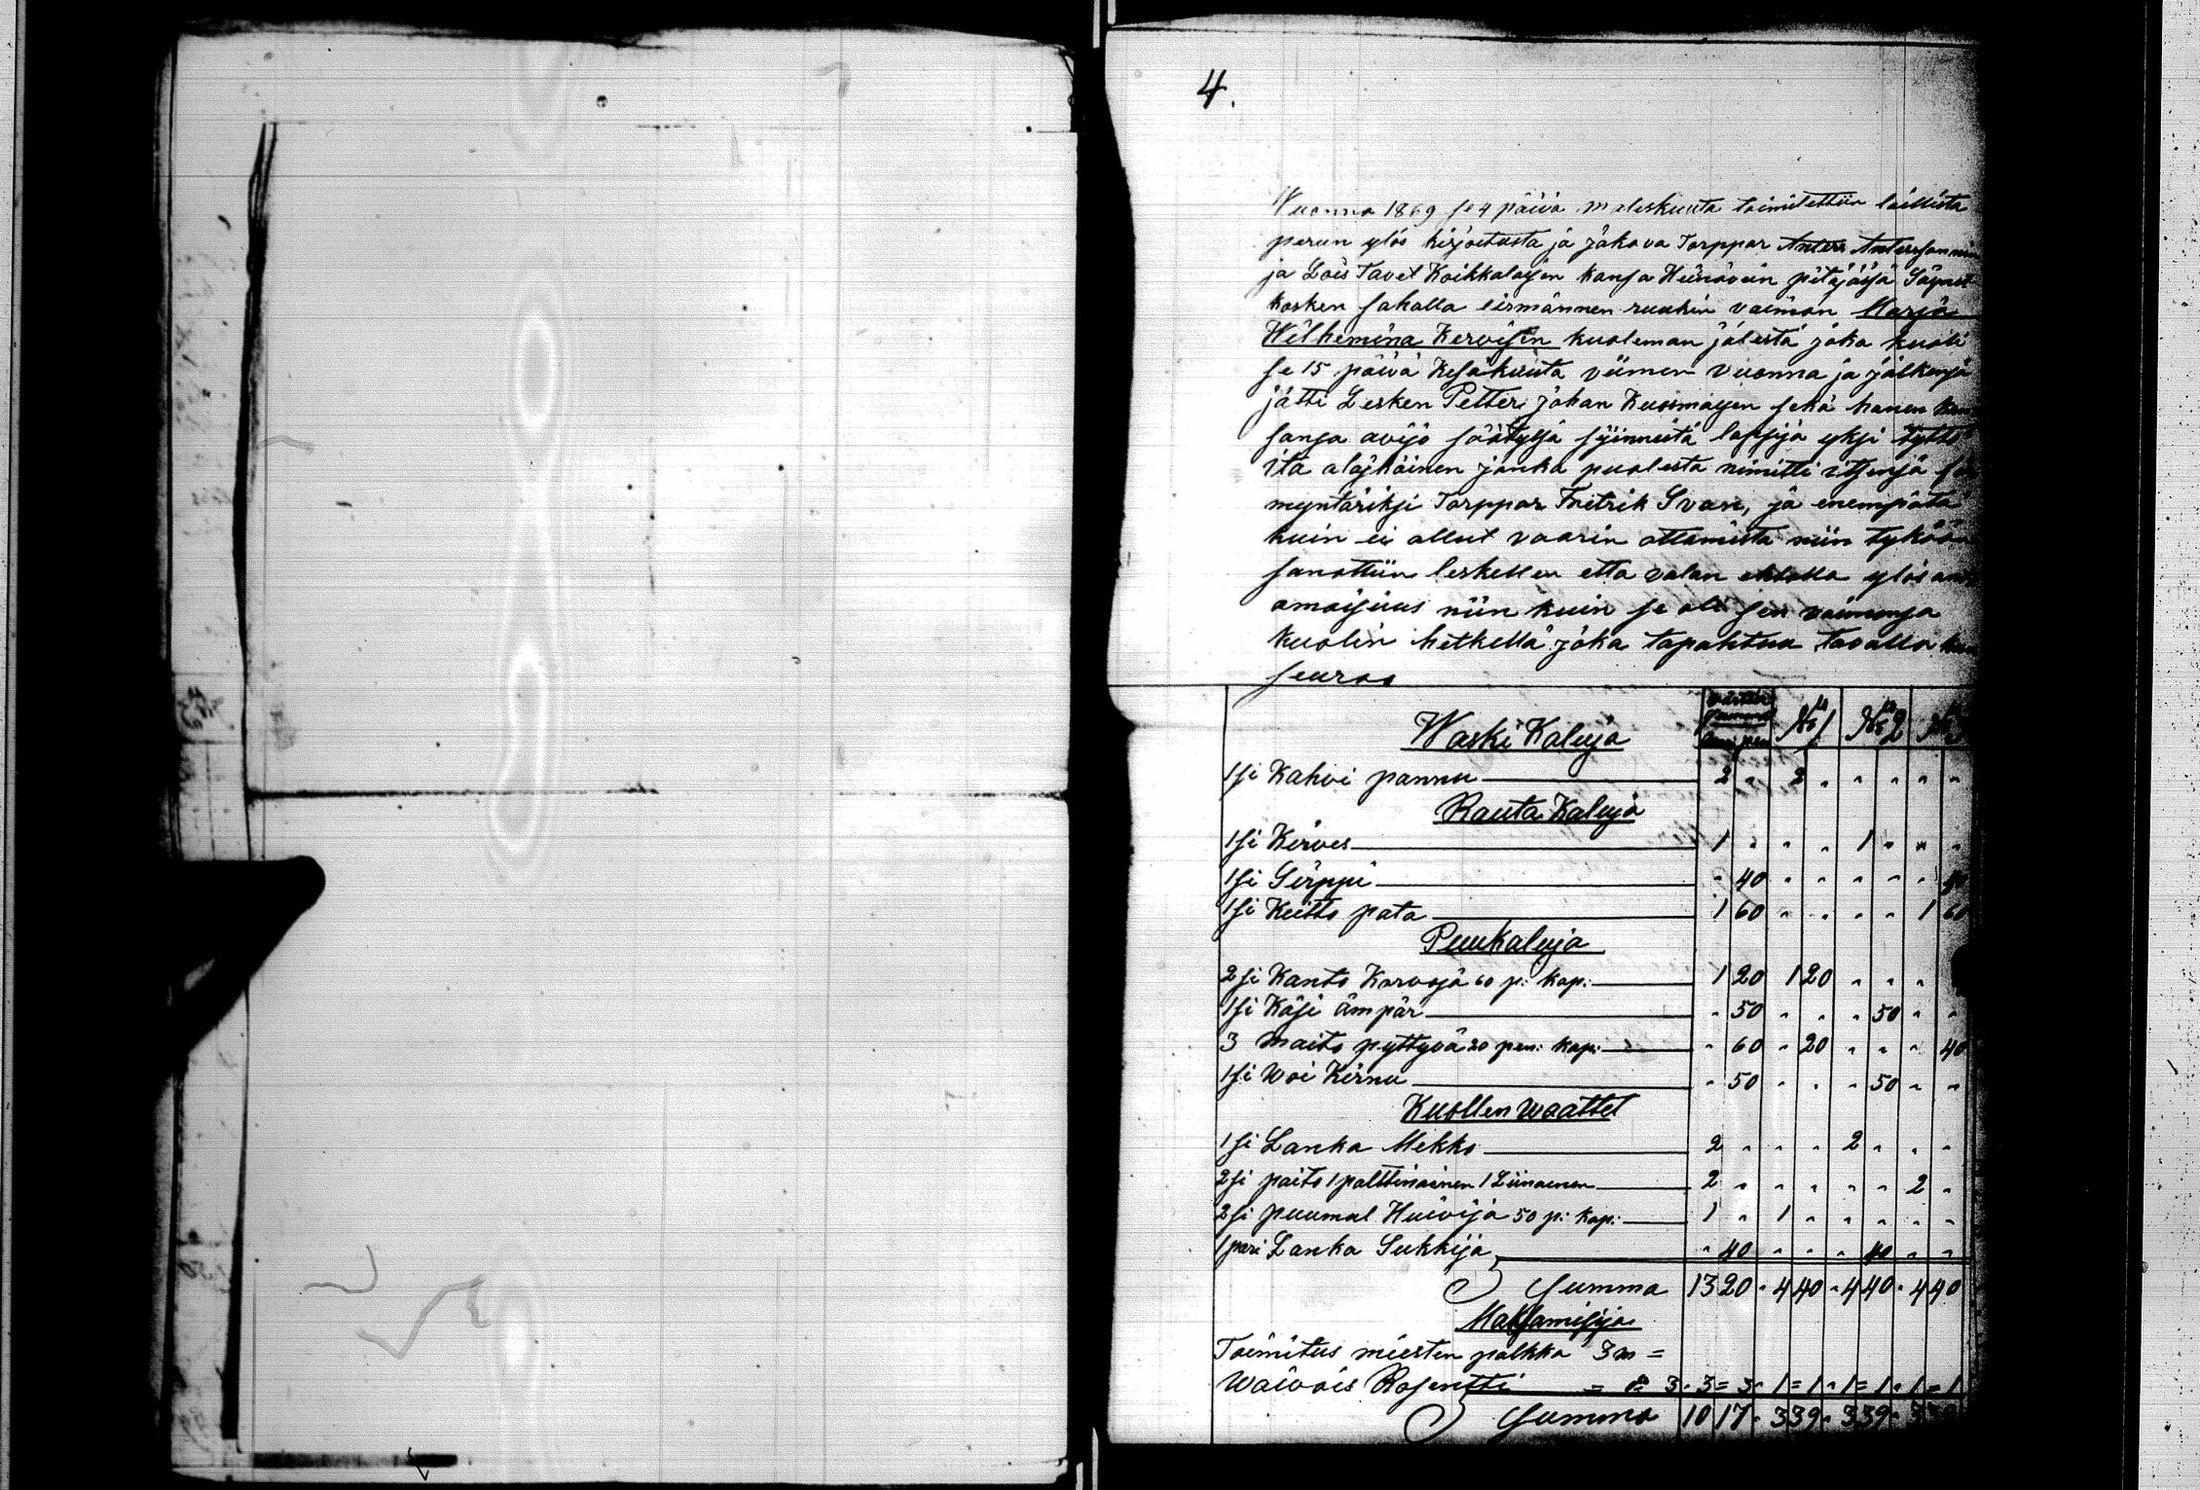 4.
Wuonna 1869 se 4 päivä maleskuuta toimitettiin laillista
perun ylös kirjoitusta ja jakova Torppar Anters Anterssonnin
ja Lois Tavet Koikkalaisen kansa Heinävein pitäjäsä Säynet
kosken sahalla lismännen ruukin vaimon Marja
Wilhemina Kervisen kuoleman jälestä joka kuoli
se 15 päivä Kesäkuuta viimen vuonna ja jälkensä
jätti Lesken Petter Johan Kuosmasen sekä hanen
sansa avijo säätysä syinneitä lapsija yksi tyttö
itä alajkäinen jonka puolesta nimitti itsensä
myntäriksi Torppar Fretrik Svan, ja enempätä
kuin ei ollut vaarin ottamista niin tykönä
sanottiin leskellen että valan ehtolla ylös
omaisuus niin kuin se oli sen vaimonsa
kuolin hetkellä joka tapahtuu tavalla
seuraa
No 1 No 2 No 3
Waski Kaluja
1 si Kahvi pannu 2 " 2 " " " " "
Rauta Kaluja
1 si Kirves 1 " " " 1 " " "
1 si Sirppi " 40 " " " " " 40
1 si Keitto pata 1 60 " " " " 1 60
Puukaluja
2 si Kanto Korvoja 60 p: kap: 1 20 1 20 " " "
1 si Käsi ämpär " 50 " " " 50 " "
3 Maito pyttyvä 20 pen: kap: " 60 " 20 " " " 40
1 si Woi Kirnu " 50 " " " 50 " "
Kuollen waattet
1 si Lanka Mekko 2 " " " 2 " " "
2 si paito 1 palttinainen 1 Liinainen 2 " " " " " 2 "
2 si puumul Huivija 50 p: kap: 1 " 1 " " " " "
1 pari Lanka Sukkija " 40 " " " 40 " "
Summa 13 20 " 4 40 " 4 40 " 4 40
Maksamisija
Toimitus miesten palkka 3 m =
Waivais Rosentti = " 3 " 3 = 3 " 1 = 1 " 1 = 1 " 1 = 1
Summa 10 17 " 3 39 " 3 39 " 3 39